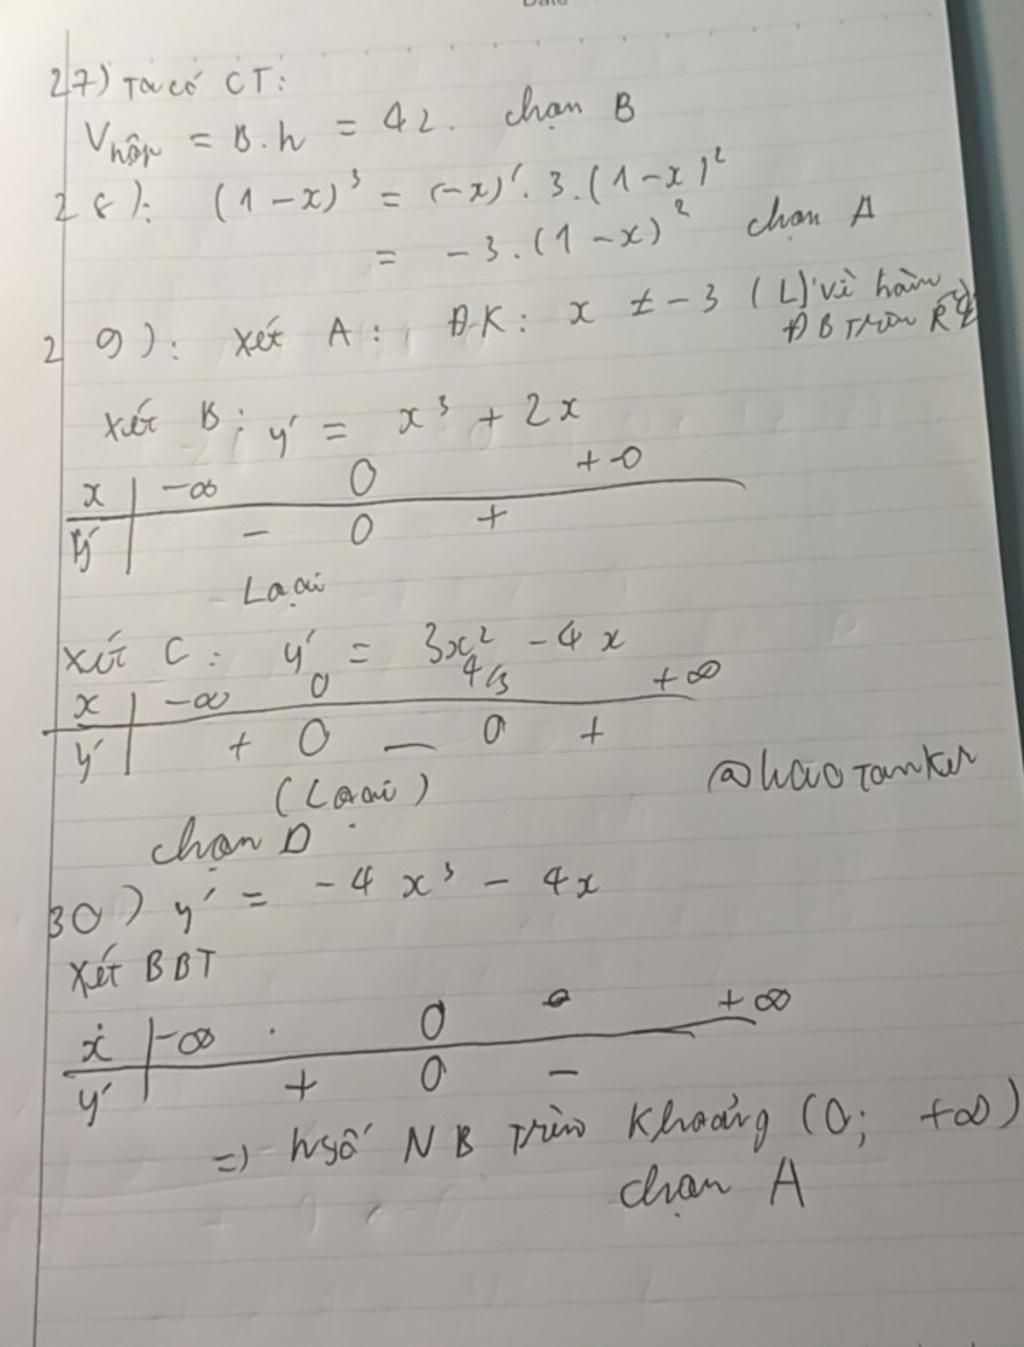 27) Ta có CT:
Vhộp = B.h = 42. chọn B
28): (1-x)³ = (-x)'. 3.(1-x)²
= -3.(1-x)² chọn A
29): xét A: ĐK: x ≠ -3 (L) vì hàm
ĐB trên R
xét B: y' = x³ + 2x
x | -∞ 0 +∞
y' | - 0 +
Loại
xét C: y' = 3x² - 4x
x | -∞ 0 4/3 +∞
y' | + 0 - 0 +
(Loại)
@haotanker
chọn D
30) y' = -4x³ - 4x
xét BBT
x | -∞ 0 +∞
y' | + 0 -
=) hsố NB trên khoảng (0; +∞)
chọn A